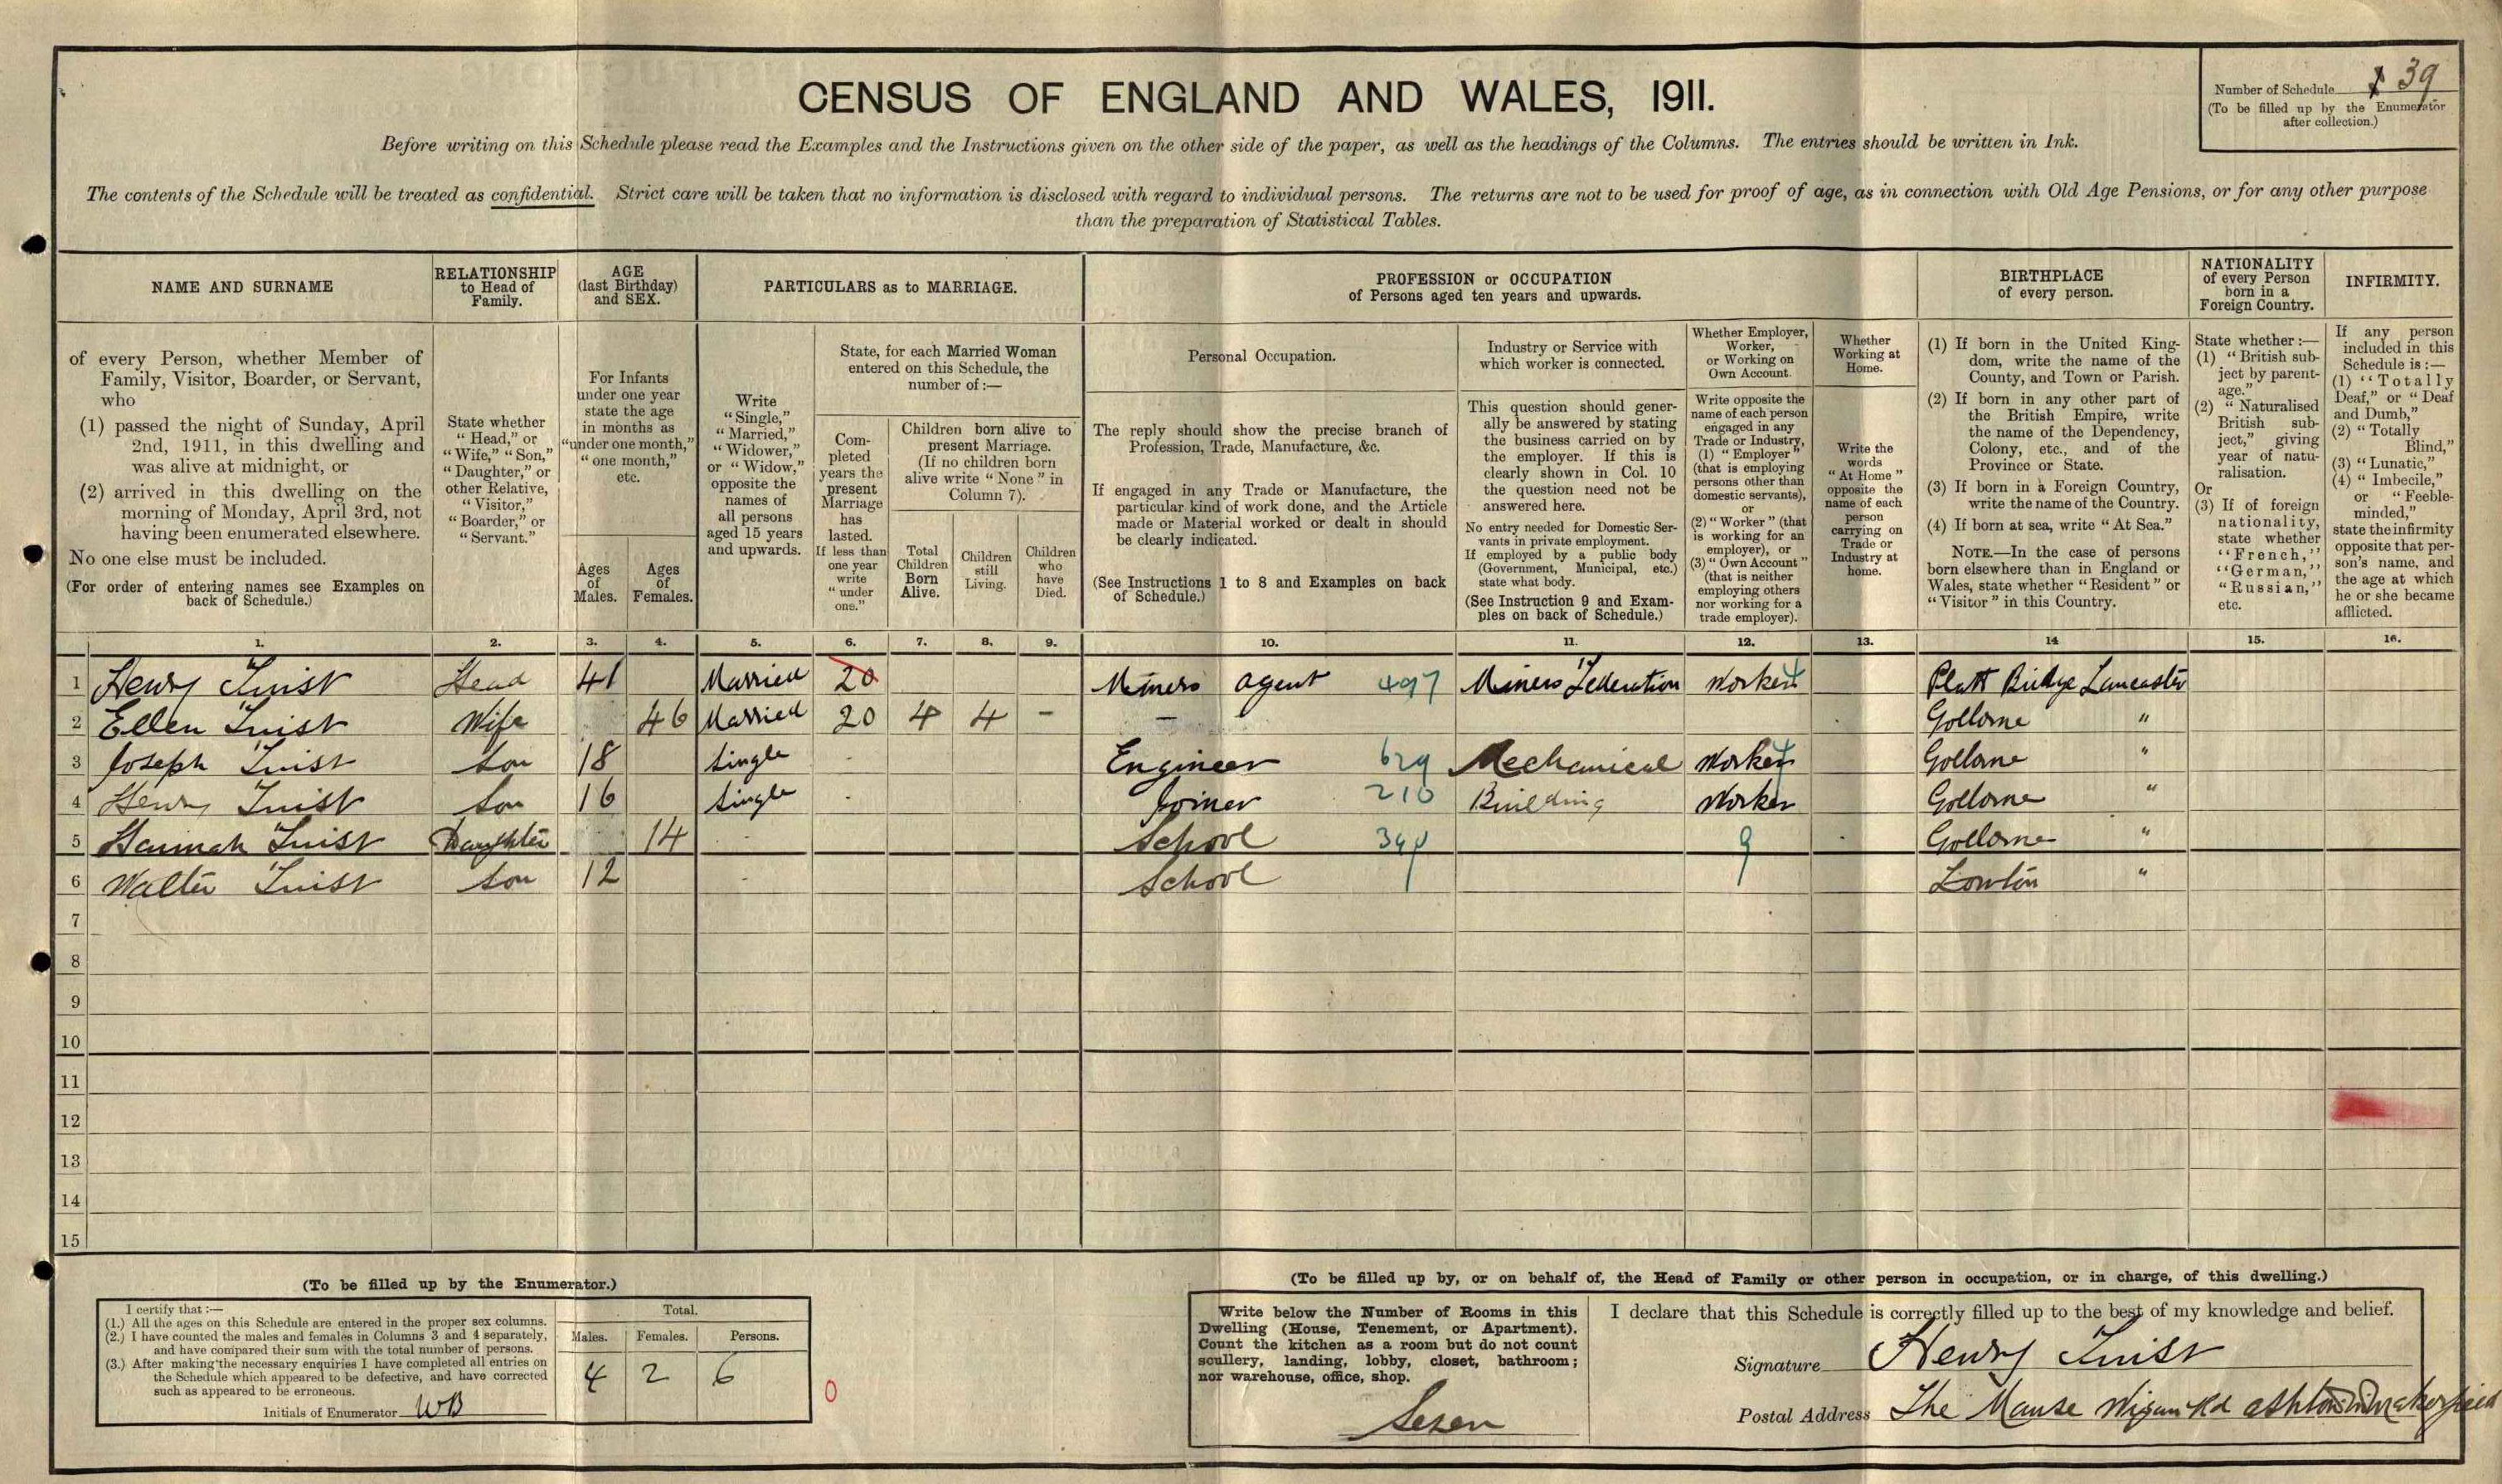 Number of Schedule 39
(To be filled up by the Enumerator
after collection.)
CENSUS OF ENGLAND AND WALES, 1911.
Before writing on this Schedule please read the Examples and the Instructions given on the other side of the paper, as well as the headings of the Columns. The entries should be written in Ink.
The contents of the Schedule will be treated as confidential. Strict care will be taken that no information is disclosed with regard to individual persons. The returns are not to be used for proof of age, as in connection with Old Age Pensions, or for any other purpose
than the preparation of Statistical Tables.
NAME AND SURNAME
of every Person, whether Member of
Family, Visitor, Boarder, or Servant,
who
(1) passed the night of Sunday, April
2nd, 1911, in this dwelling and
was alive at midnight, or
(2) arrived in this dwelling on the
morning of Monday, April 3rd, not
having been enumerated elsewhere.
No one else must be included.
(For order of entering names see Examples on
back of Schedule.)
RELATIONSHIP
to Head of
Family.
State whether
"Head," or
"Wife," "Son,"
"Daughter," or
other Relative,
"Visitor,"
"Boarder," or
"Servant."
AGE
(last Birthday)
and SEX.
For Infants
under one year
state the age
in months as
"under one month,"
"one month,"
etc.
Ages
of
Males.
Ages
of
Females.
PARTICULARS as to MARRIAGE.
Write
"Single,"
"Married,"
"Widower,"
or "Widow,"
opposite the
names of
all persons
aged 15 years
and upwards.
State, for each Married Woman
entered on this Schedule, the
number of :—
Com-
pleted
years the
present
Marriage
has
lasted.
If less than
one year
write
"under
one."
Children born alive to
present Marriage.
(If no children born
alive write "None" in
Column 7).
Total
Children
Born
Alive.
Children
still
Living.
Children
who
have
Died.
PROFESSION or OCCUPATION
of Persons aged ten years and upwards.
Personal Occupation.
The reply should show the precise branch of
Profession, Trade, Manufacture, &c.
If engaged in any Trade or Manufacture, the
particular kind of work done, and the Article
made or Material worked or dealt in should
be clearly indicated.
(See Instructions 1 to 8 and Examples on back
of Schedule.)
Industry or Service with
which worker is connected.
This question should gener-
ally be answered by stating
the business carried on by
the employer. If this is
clearly shown in Col. 10
the question need not be
answered here.
No entry needed for Domestic Ser-
vants in private employment.
If employed by a public body
(Government, Municipal, etc.)
state what body.
(See Instruction 9 and Exam-
ples on back of Schedule.)
Whether Employer,
Worker,
or Working on
Own Account.
Write opposite the
name of each person
engaged in any
Trade or Industry,
(1) "Employer"
(that is employing
persons other than
domestic servants),
or
(2) "Worker" (that
is working for an
employer), or
(3) "Own Account"
(that is neither
employing others
nor working for a
trade employer).
Whether
Working at
Home.
Write the
words
"At Home"
opposite the
name of each
person
carrying on
Trade or
Industry at
home.
BIRTHPLACE
of every person.
(1) If born in the United King-
dom, write the name of the
County, and Town or Parish.
(2) If born in any other part of
the British Empire, write
the name of the Dependency,
Colony, etc., and of the
Province or State.
(3) If born in a Foreign Country,
write the name of the Country.
(4) If born at sea, write "At Sea."
NOTE.—In the case of persons
born elsewhere than in England or
Wales, state whether "Resident" or
"Visitor" in this Country.
NATIONALITY
of every Person
born in a
Foreign Country.
State whether :—
(1) "British sub-
ject by parent-
age."
(2) "Naturalised
British sub-
ject," giving
year of natu-
ralisation.
Or
(3) If of foreign
nationality,
state whether
"French,"
"German,"
"Russian,"
etc.
INFIRMITY.
If any person
included in this
Schedule is :—
(1) "Totally
Deaf," or "Deaf
and Dumb,"
(2) "Totally
Blind,"
(3) "Lunatic,"
(4) "Imbecile,"
or "Feeble-
minded,"
state the infirmity
opposite that per-
son's name, and
the age at which
he or she became
afflicted.
1. 2. 3. 4. 5. 6. 7. 8. 9. 10. 11. 12. 13. 14 15. 16.
1 Henry Twist Head 41 Married 20 Miners agent 497 Miners Federation Worker Platt Bridge Lancaster
2 Ellen Twist Wife 46 Married 20 4 4 - - Golborne "
3 Joseph Twist Son 18 Single - Engineer 629 Mechanical Worker Golborne "
4 Henry Twist Son 16 Single - Joiner 210 Building Worker Golborne "
5 Hannah Twist Daughter 14 - School 9 Golborne "
6 Walter Twist Son 12 - School Lowton "
7
8
9
10
11
12
13
14
15
(To be filled up by the Enumerator.)
I certify that :—
(1.) All the ages on this Schedule are entered in the proper sex columns.
(2.) I have counted the males and females in Columns 3 and 4 separately,
and have compared their sum with the total number of persons.
(3.) After making the necessary enquiries I have completed all entries on
the Schedule which appeared to be defective, and have corrected
such as appeared to be erroneous.
Initials of Enumerator WB
Total.
Males. Females. Persons.
4 2 6
0
(To be filled up by, or on behalf of, the Head of Family or other person in occupation, or in charge, of this dwelling.)
Write below the Number of Rooms in this
Dwelling (House, Tenement, or Apartment).
Count the kitchen as a room but do not count
scullery, landing, lobby, closet, bathroom;
nor warehouse, office, shop.
Seven
I declare that this Schedule is correctly filled up to the best of my knowledge and belief.
Signature Henry Twist
Postal Address The Manse Wigan Rd ashton in makerfield